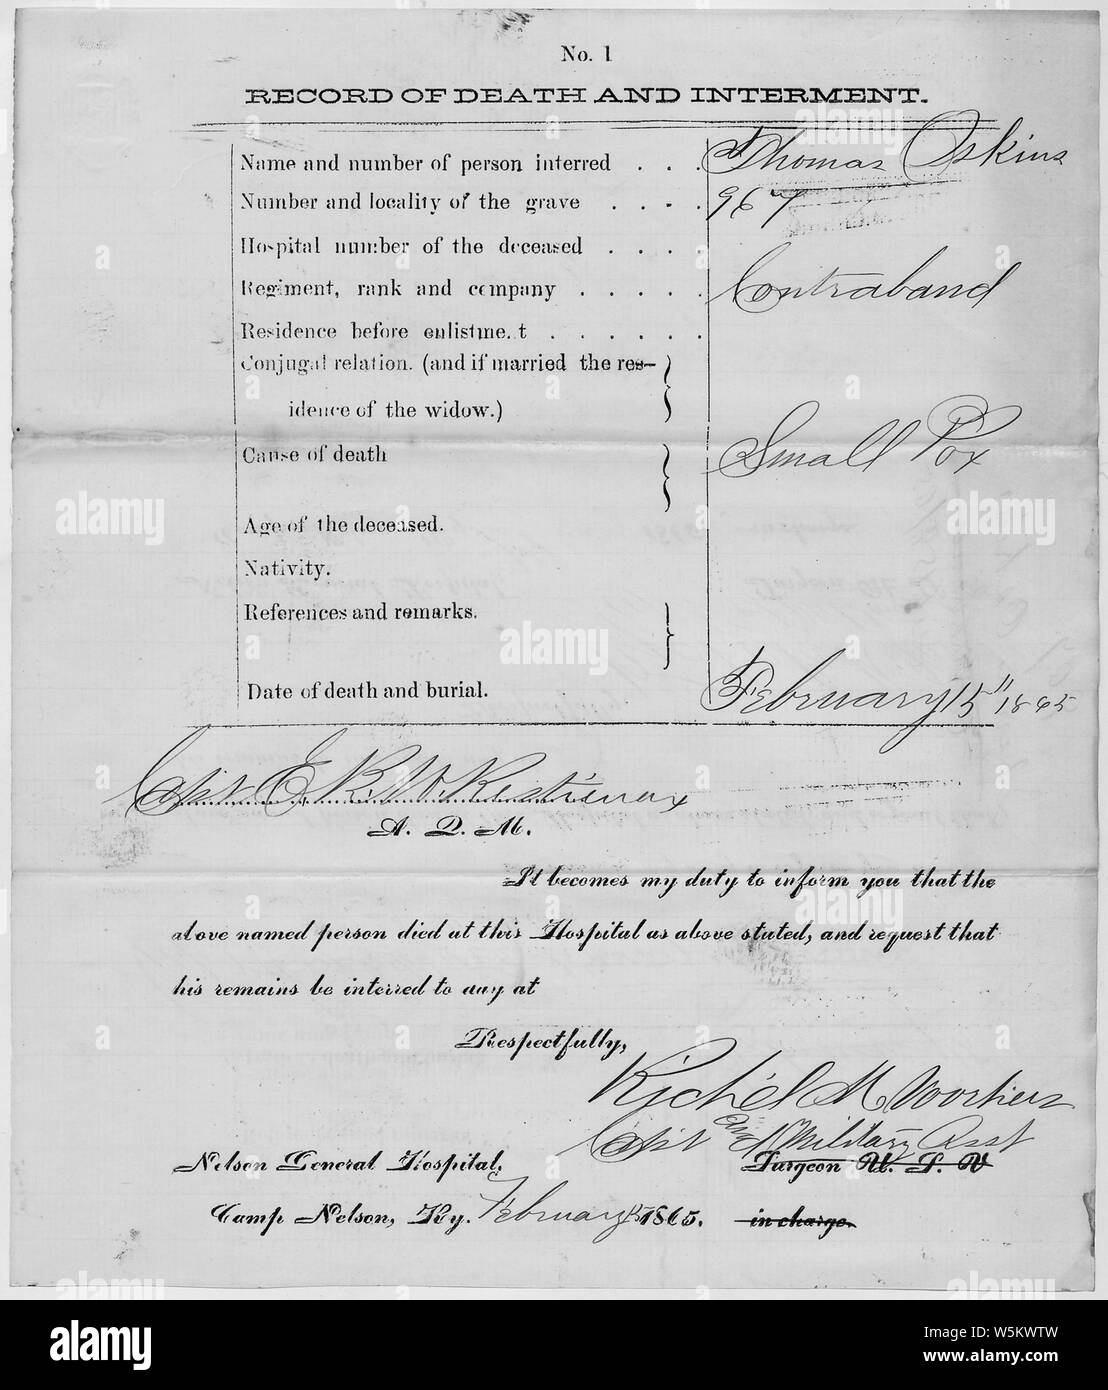 No. 1
RECORD OF DEATH AND INTERMENT.
Name and number of person interred . . . Thomas Oskins
Number and locality of the grave . . . . 967
Hospital number of the deceased . . . .
Regiment, rank and company . . . . . Contraband
Residence before enlistme.t . . . . . .
Conjugal relation. (and if married the res-
idence of the widow.)
Cause of death Small Pox
Age of the deceased.
Nativity.
References and remarks.
Date of death and burial. February 15" 1865
Capt E. B. W. Restieaux
A. Q. M.
It becomes my duty to inform you that the
above named person died at this Hospital as above stated, and request that
his remains be interred to day at
Respectfully,
Rich'd M
Capt and Military Asst
Nelson General Hospital, Surgeon U. S. V
Camp Nelson, Ky. February 15 1865. in charge.
alamy
Image ID: W5KWTW
www.alamy.com